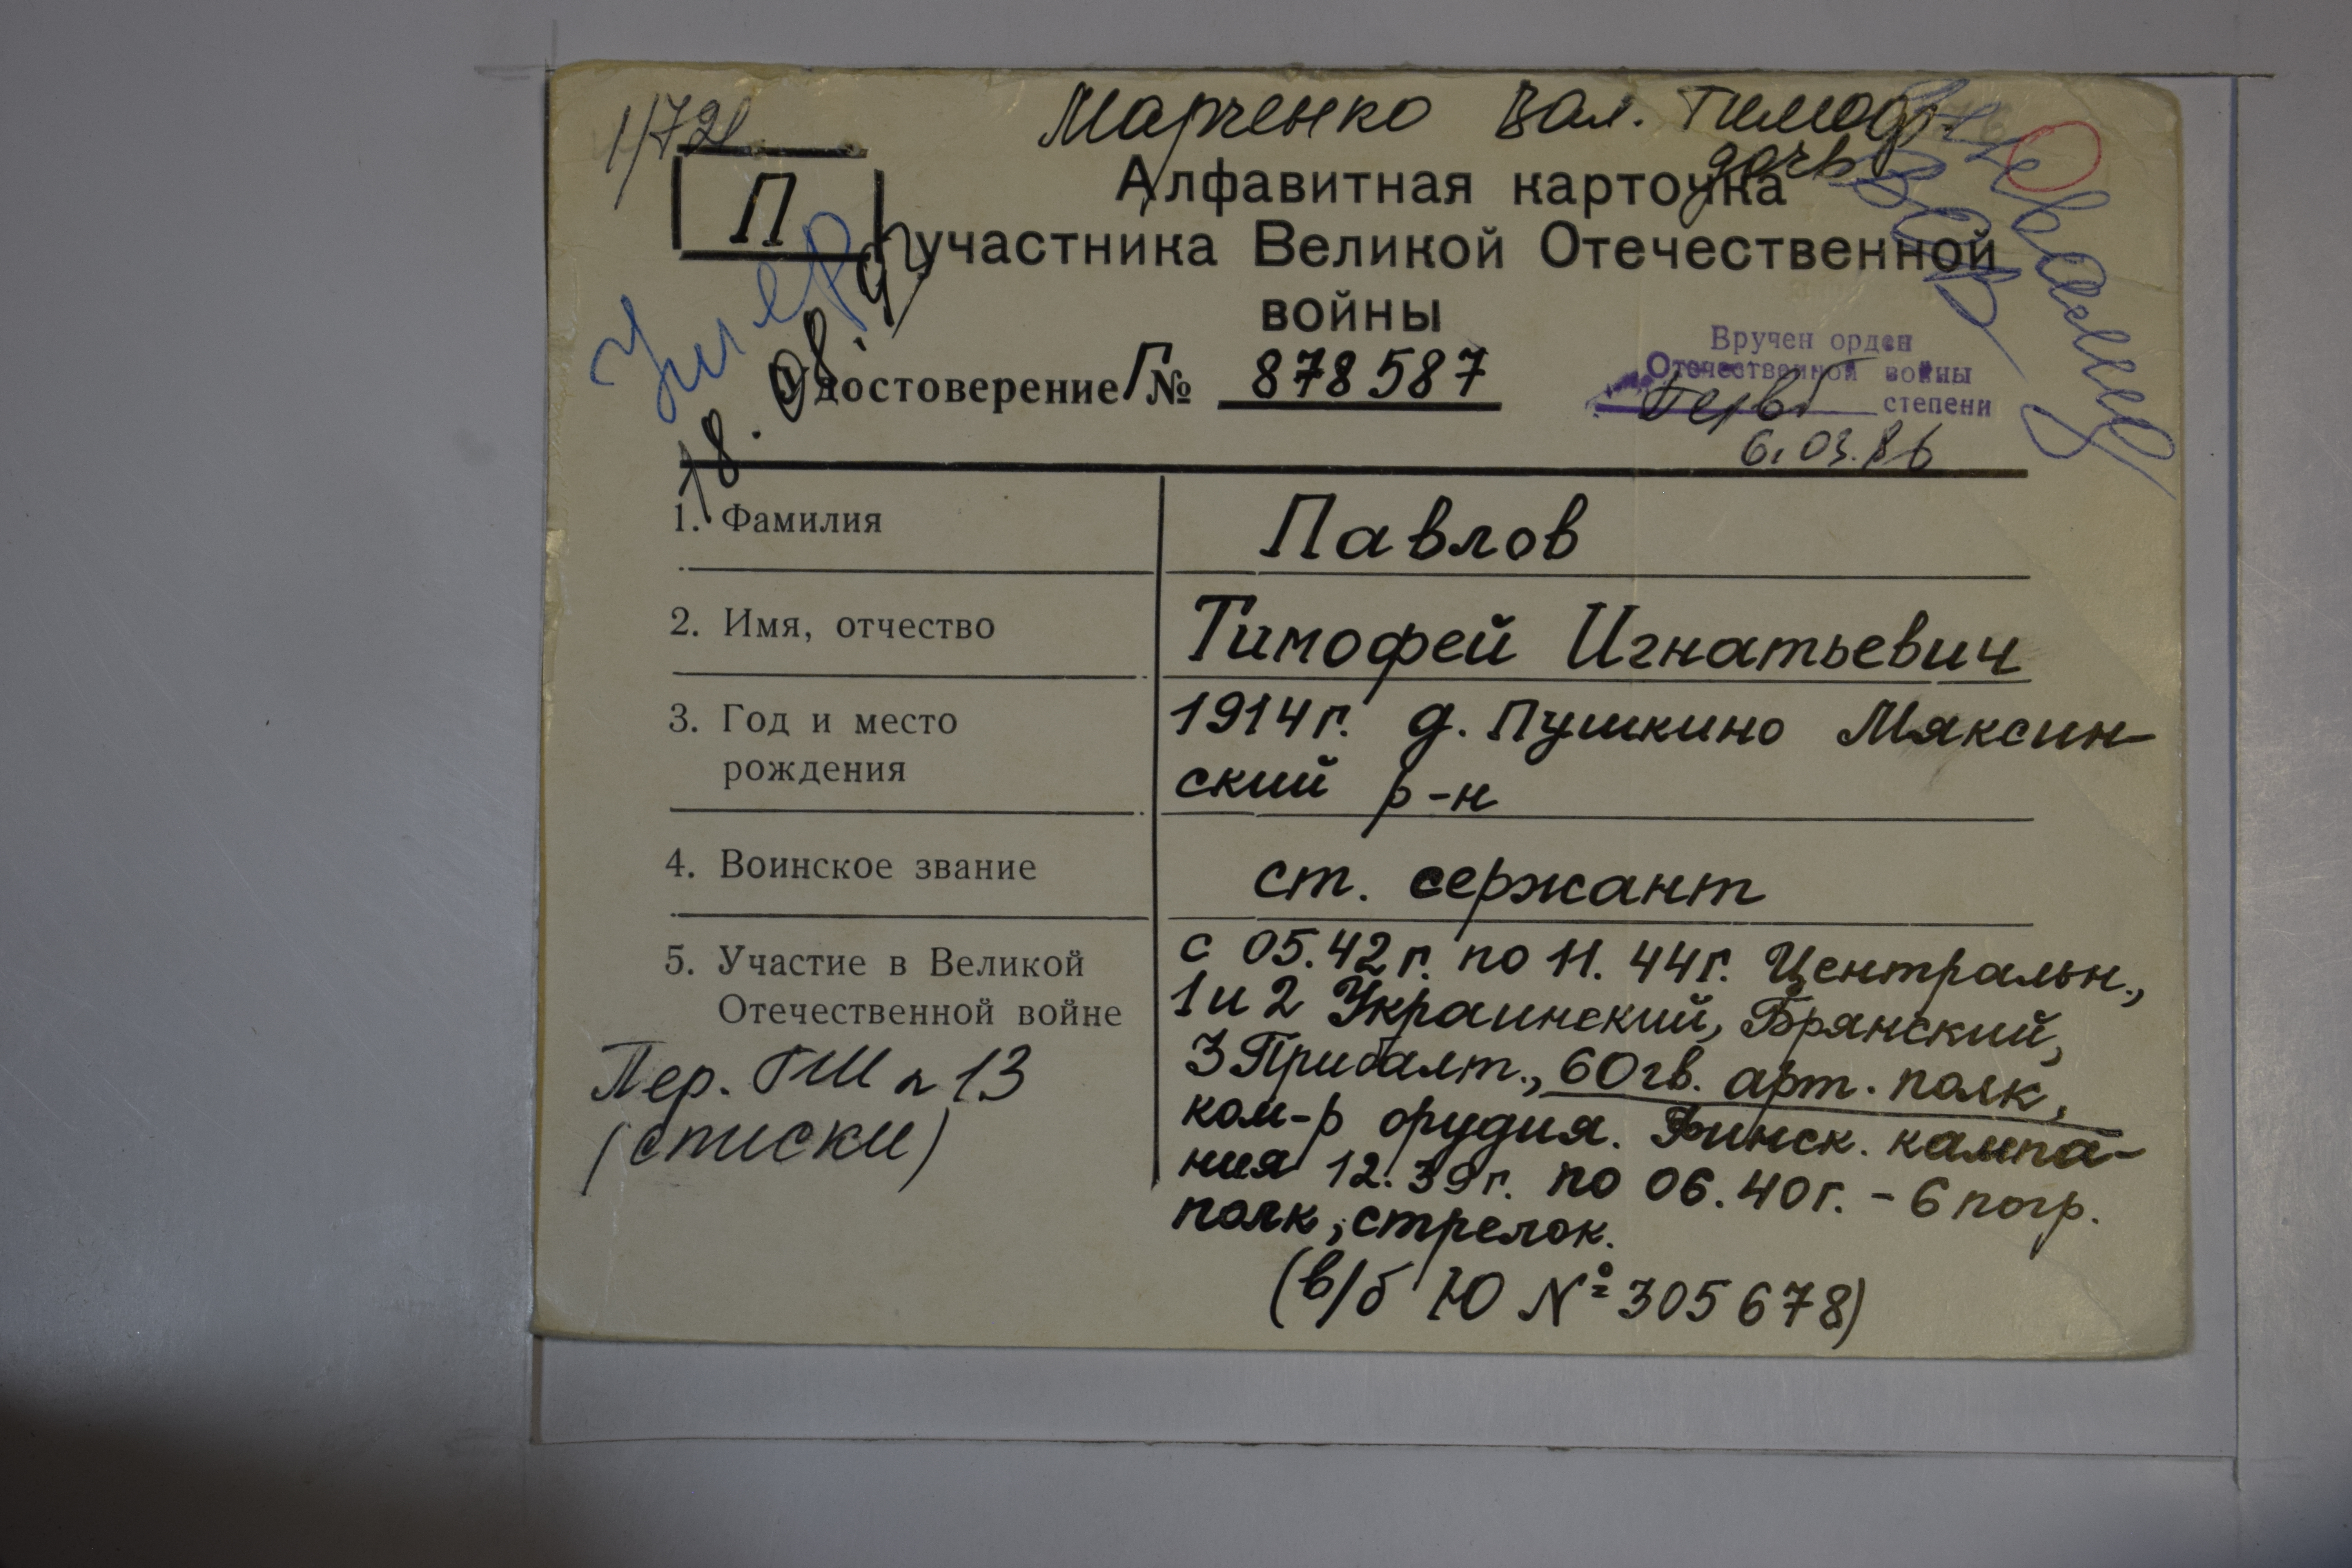 1/721
Марченко Вал. Тимоф.
дочь
П
Алфавитная карточка
участника Великой Отечественной
войны
Умер
18. 08. 91
Удостоверение Г № 878587
Вручен орден
Отечественной войны
Перв. степени
6.03.86
1. Фамилия
Павлов
2. Имя, отчество
Тимофей Игнатьевич
3. Год и место
рождения
1914г. д. Пушкино Мяксин-
ский р-н
4. Воинское звание
ст. сержант
5. Участие в Великой
Отечественной войне
с 05.42г. по 11.44г. Центральн.,
1 и 2 Украинский, Брянский,
3 Прибалт., 60 гв. арт. полк,
ком-р орудия. Финск. кампа-
ния 12.39г. по 06.40г. - 6 погр.
полк, стрелок.
(в/б Ю № 305678)
Пер. ГШ л 13
(списки)